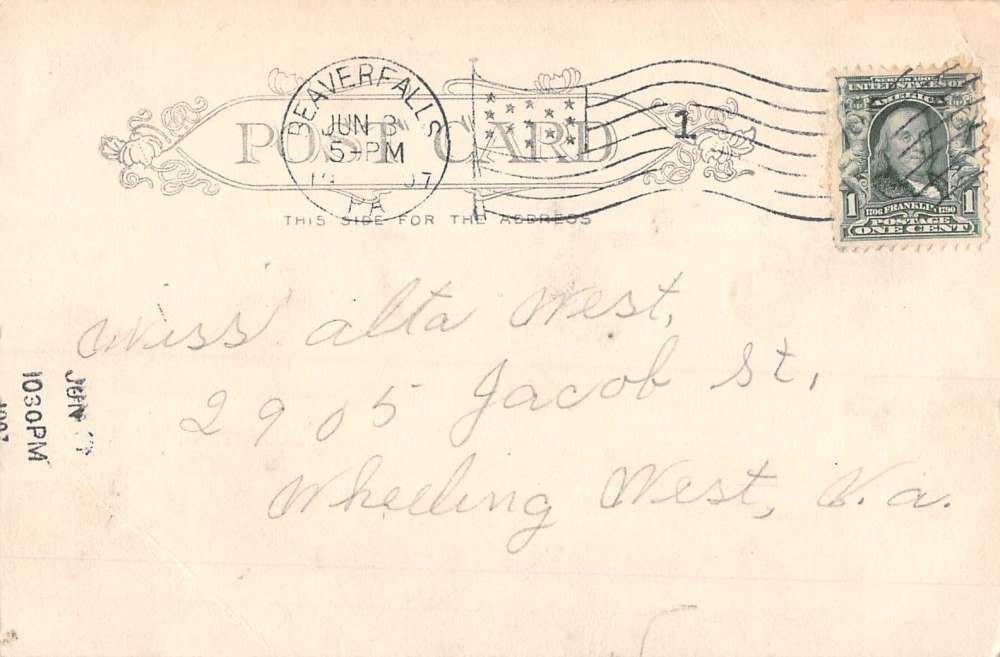 POST CARD
BEAVER FALLS
JUN 3
5-PM
PA
1
THIS SIDE FOR THE ADDRESS
SERIES 1902
UNITED STATES OF
AMERICA
1 1706 FRANKLIN 1790 1
POSTAGE
ONE CENT
Miss alta West,
2905 Jacob St,
Wheeling West, Va.
JUN
1030PM